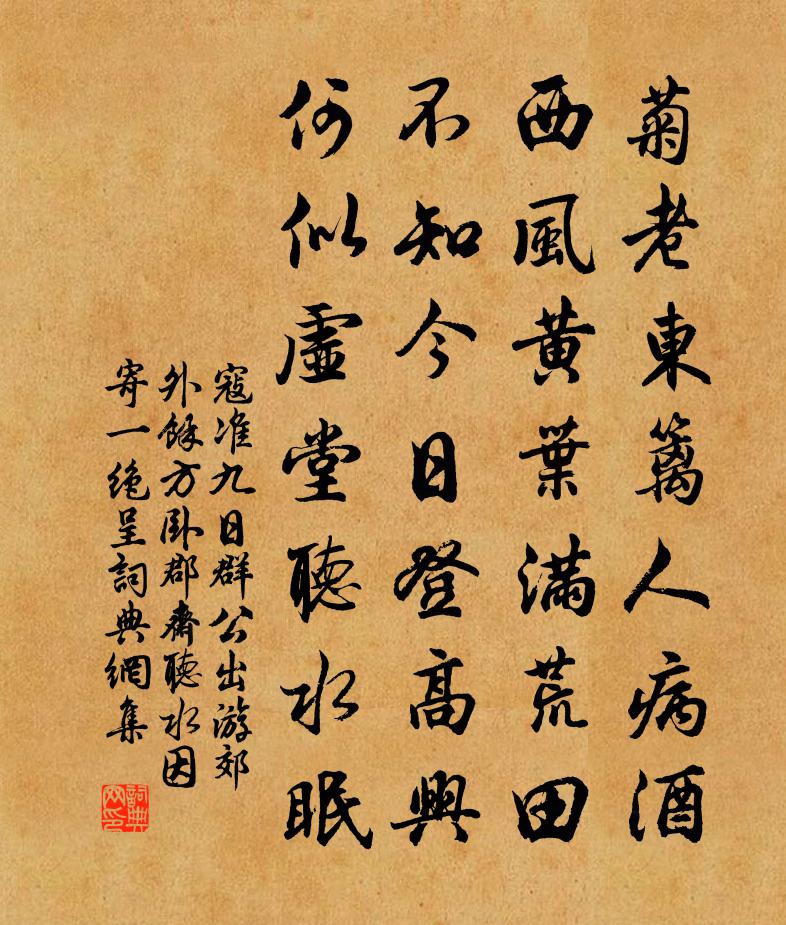 菊老東籬人病酒
西風黃葉滿荒田
不知今日登高興
何似虛堂聽水眠
寇准九日群公出游郊
外餘方卧郡齋聽水因
寄一絶呈詞典網集
詞典
网印